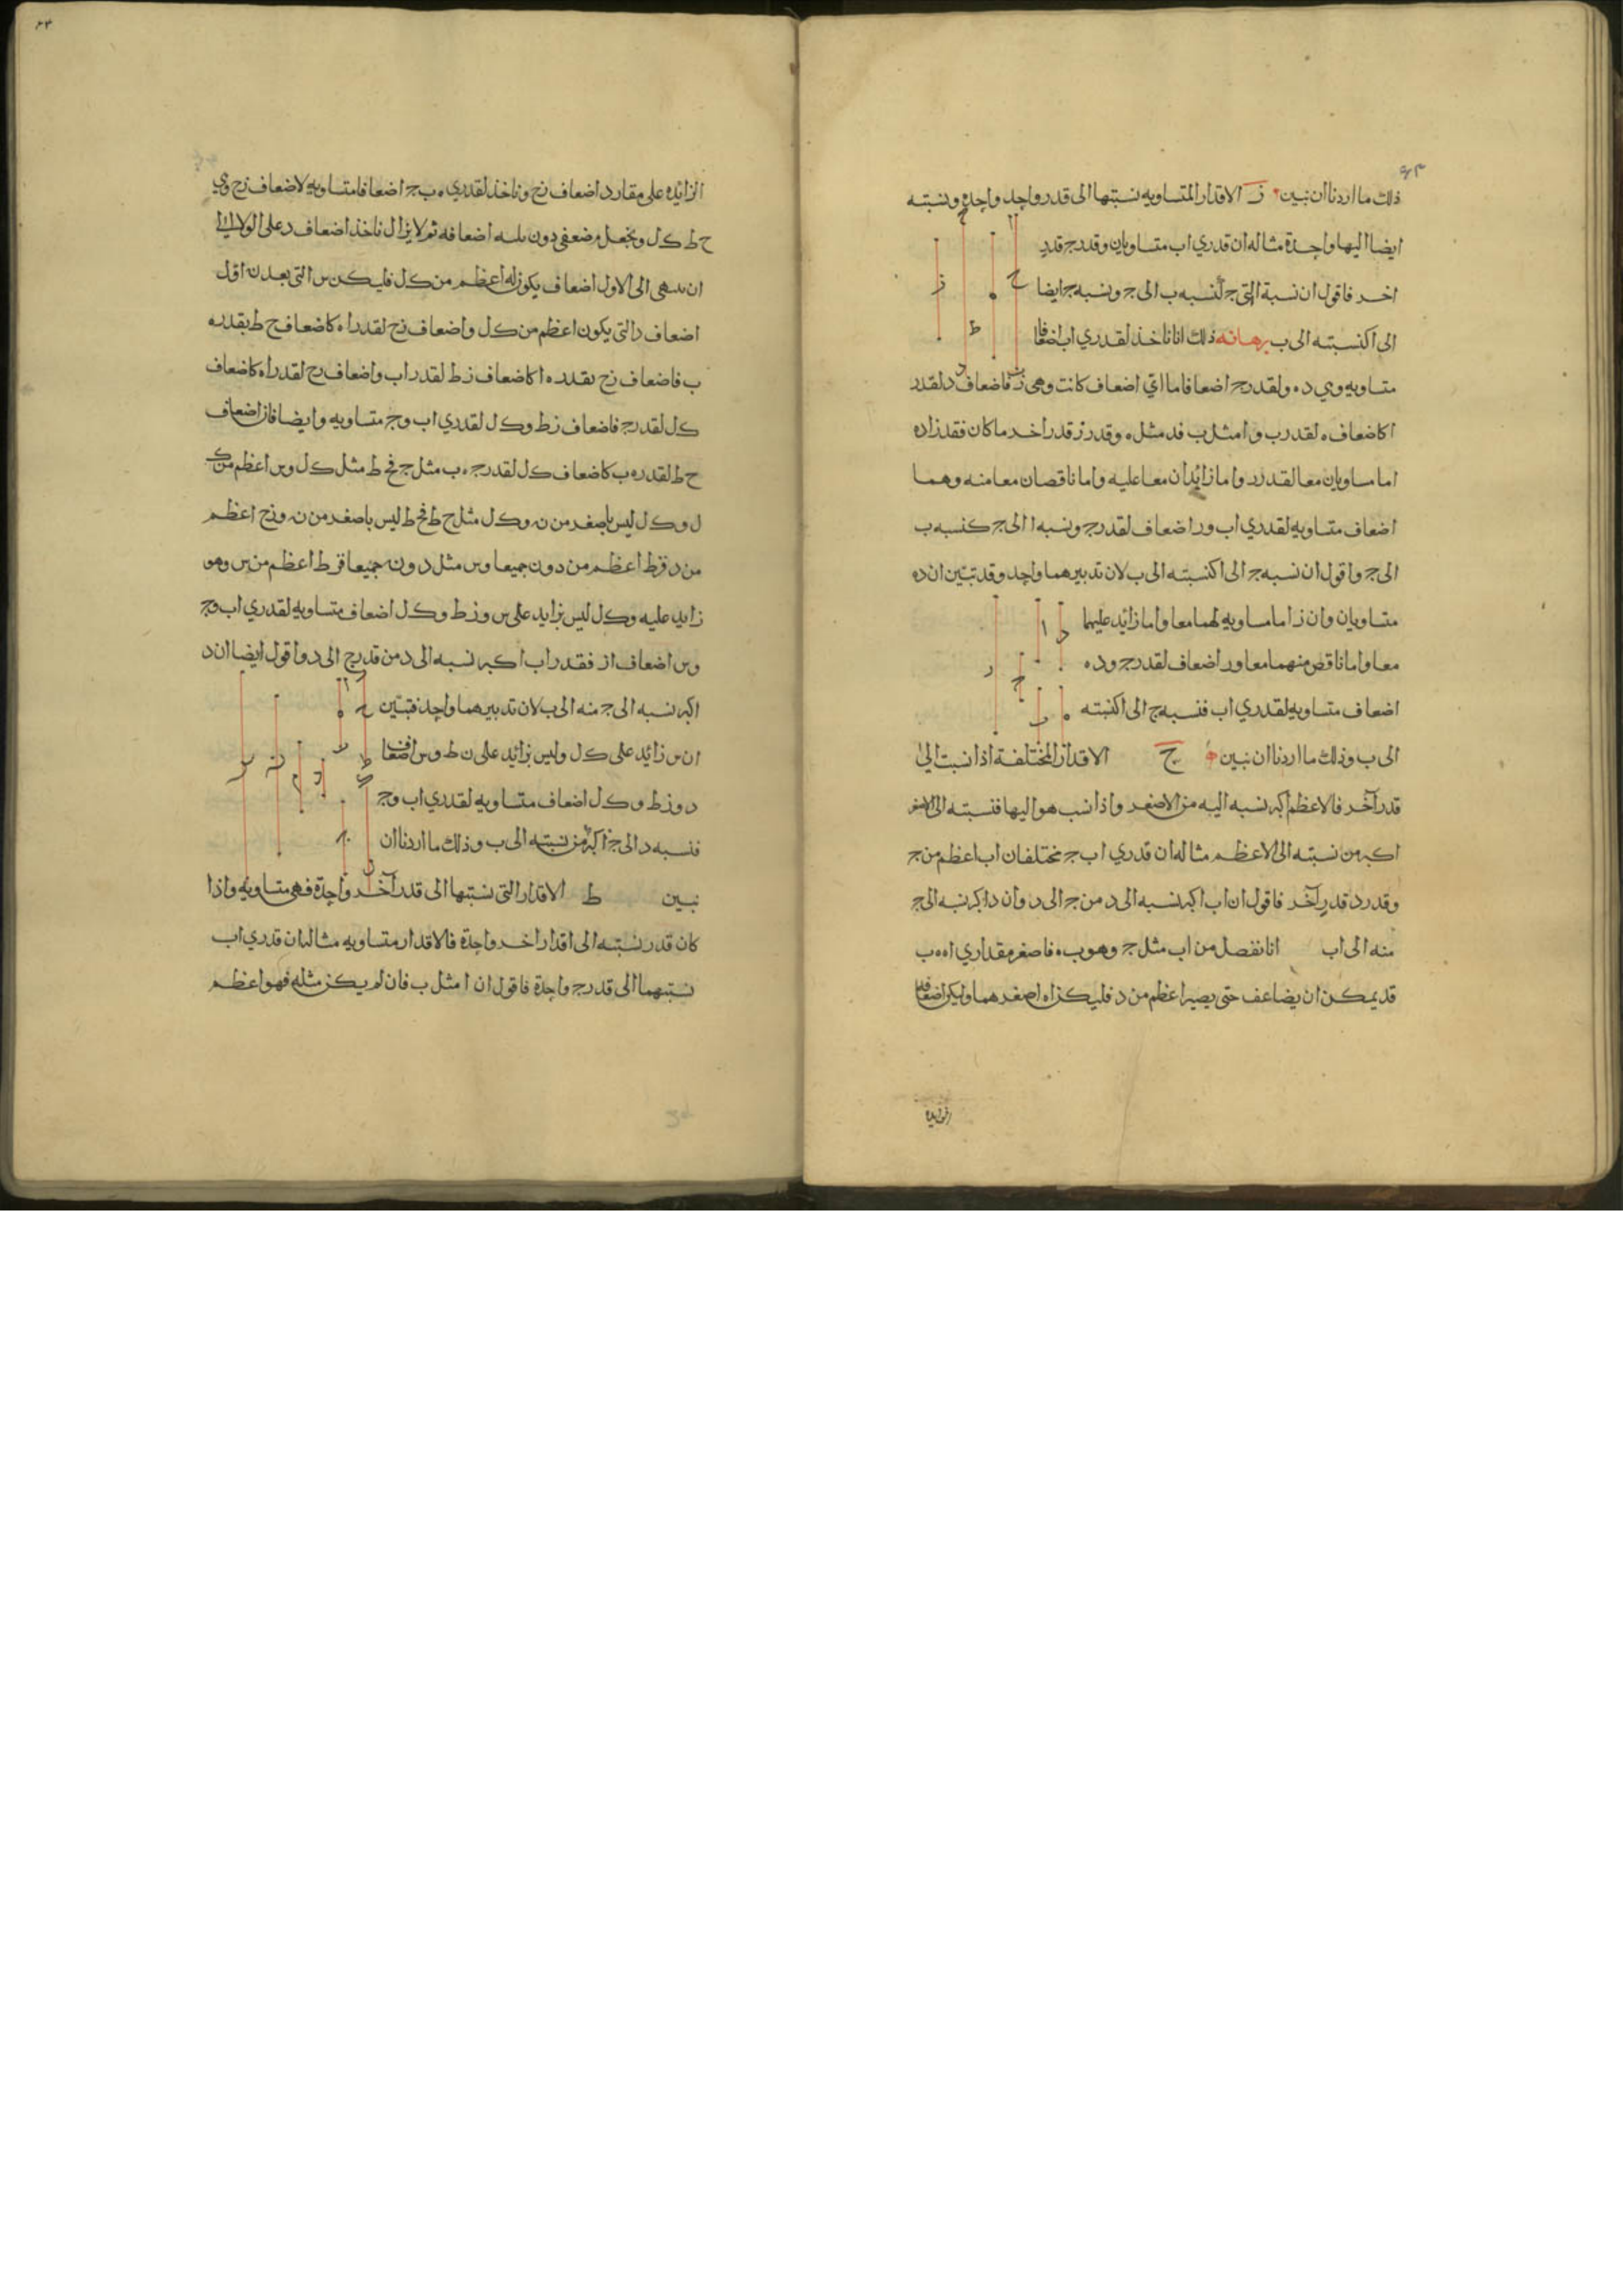 ٤٣
ذلك ما اردنا ان نبين ز الاقدار المتساويه نسبتها الى قدر واحد واحدة ونسبته
ايضا اليها واحدة مثاله ان قدري اب متساويان وقدر ج قدر
اخر فاقول ان نسبة ج لنسبه ب الى ج ونسبه ج ايضا
الى ا كنسبته الى ب برهانه ذلك انا ناخذ لقدري اب اضعافا
متساويه وهي د ه ولقدر ج اضعافا ما اي اضعاف كانت وهي ز فاضعاف د لقدر
ا كاضعاف ه لقدر ب و ا مثل ب فد مثل ه وقدر ز قدر اخر ما كان فقدرا د ه
اما مساويان معا لقدر ر واما زائدان معا عليه واما ناقصان معا منه وهما
اضعاف متساويه لقدري اب و ر اضعاف لقدر ج ونسبه ا الى ج كنسبه ب
الى ج واقول ان نسبه ج الى ا كنسبته الى ب لان تدبيرهما واحد وقد تبين ان د ه
متساويان وان ز اما مساويه لهما معا واما زائد عليهما
معا واما ناقص منهما معا و ر اضعاف لقدر ج و د ه
اضعاف متساويه لقدري اب فنسبه ج الى ا كنسبته
الى ب وذلك ما اردنا ان نبين ح الاقدار المختلفة اذا نسبت الى
قدر آخر فالاعظم اكبر نسبه اليه من الاصغر واذا نسب هو اليها فنسبته الى الاصغر
اكبر من نسبته الى الاعظم مثاله ان قدري اب ج مختلفان اب اعظم من ج
وقدر د قدر آخر فاقول ان اب اكبر نسبه الى د من ج الى د وان د اكبر نسبه الى ج
منه الى اب انا نفصل من اب مثل ج وهو ب ه فاصغر مقداري ا ه ه ب
قد يمكن ان يضاعف حتى يصير اعظم من د فليكن ا ه اصغرهما وليكن اضعافه
الزائده على مقدار د اضعاف زح وناخذ لقدري ه ب ج اضعافا متساويه لاضعاف زح وهي
ح ط ك ل ونجعل م ضعفي د و ن اضعافه ثم لا يزال ناخذ اضعاف د على الولاء الى
ان الى الاول اضعاف يكون له اعظم من ك ل فليكن س التي بعد ن اول
اضعاف د التي يكون اعظم من ك ل واضعاف زح لقدر ا ه كاضعاف ح ط بقدر ه
ب فاضعاف زح بقدر ه ا كاضعاف ز ط لقدر اب واضعاف زح لقدر ا ه كاضعاف
ك ل لقدر ج فاضعاف ز ط و ك ل لقدري اب و ج متساويه وايضا فان اضعاف
ح ط لقدر ه ب كاضعاف ك ل لقدر ج ه ب مثل ج فح ط مثل ك ل و س اعظم من ك
ل و ك ل ليس باصغر من ن و ك ل مثل ح ط فح ط ليس باصغر من ن و زح اعظم
من د فزط اعظم من د و ن جميعا و س مثل د و ن جميعا فزط اعظم من س وهو
زايد عليه و ك ل ليس بزايد على س و ز ط و ك ل اضعاف متساويه لقدري اب و ج
و س اضعاف از فقدر اب اكبر نسبه الى د من قدر ج الى د واقول ايضا ان د
اكبر نسبه الى ج منه الى ب لان تدبيرهما واحد فتبين
ان س زائد على ك ل وليس بزائد على ن ط و س اضعاف
د و ز ط و ك ل اضعاف متساويه لقدري اب و ج
فنسبه د الى ج اكبر من نسبته الى ب وذلك ما اردنا ان
نبين ط الاقدار التي نسبتها الى قدر آخر واحدة فهي متساويه واذا
كان قدر نسبته الى اقدار اخر واحدة فالاقدار متساويه مثاله ان قدري اب
نسبتهما الى قدر ج واحدة فاقول ان ا مثل ب فان لم يكن مثله فهو اعظم